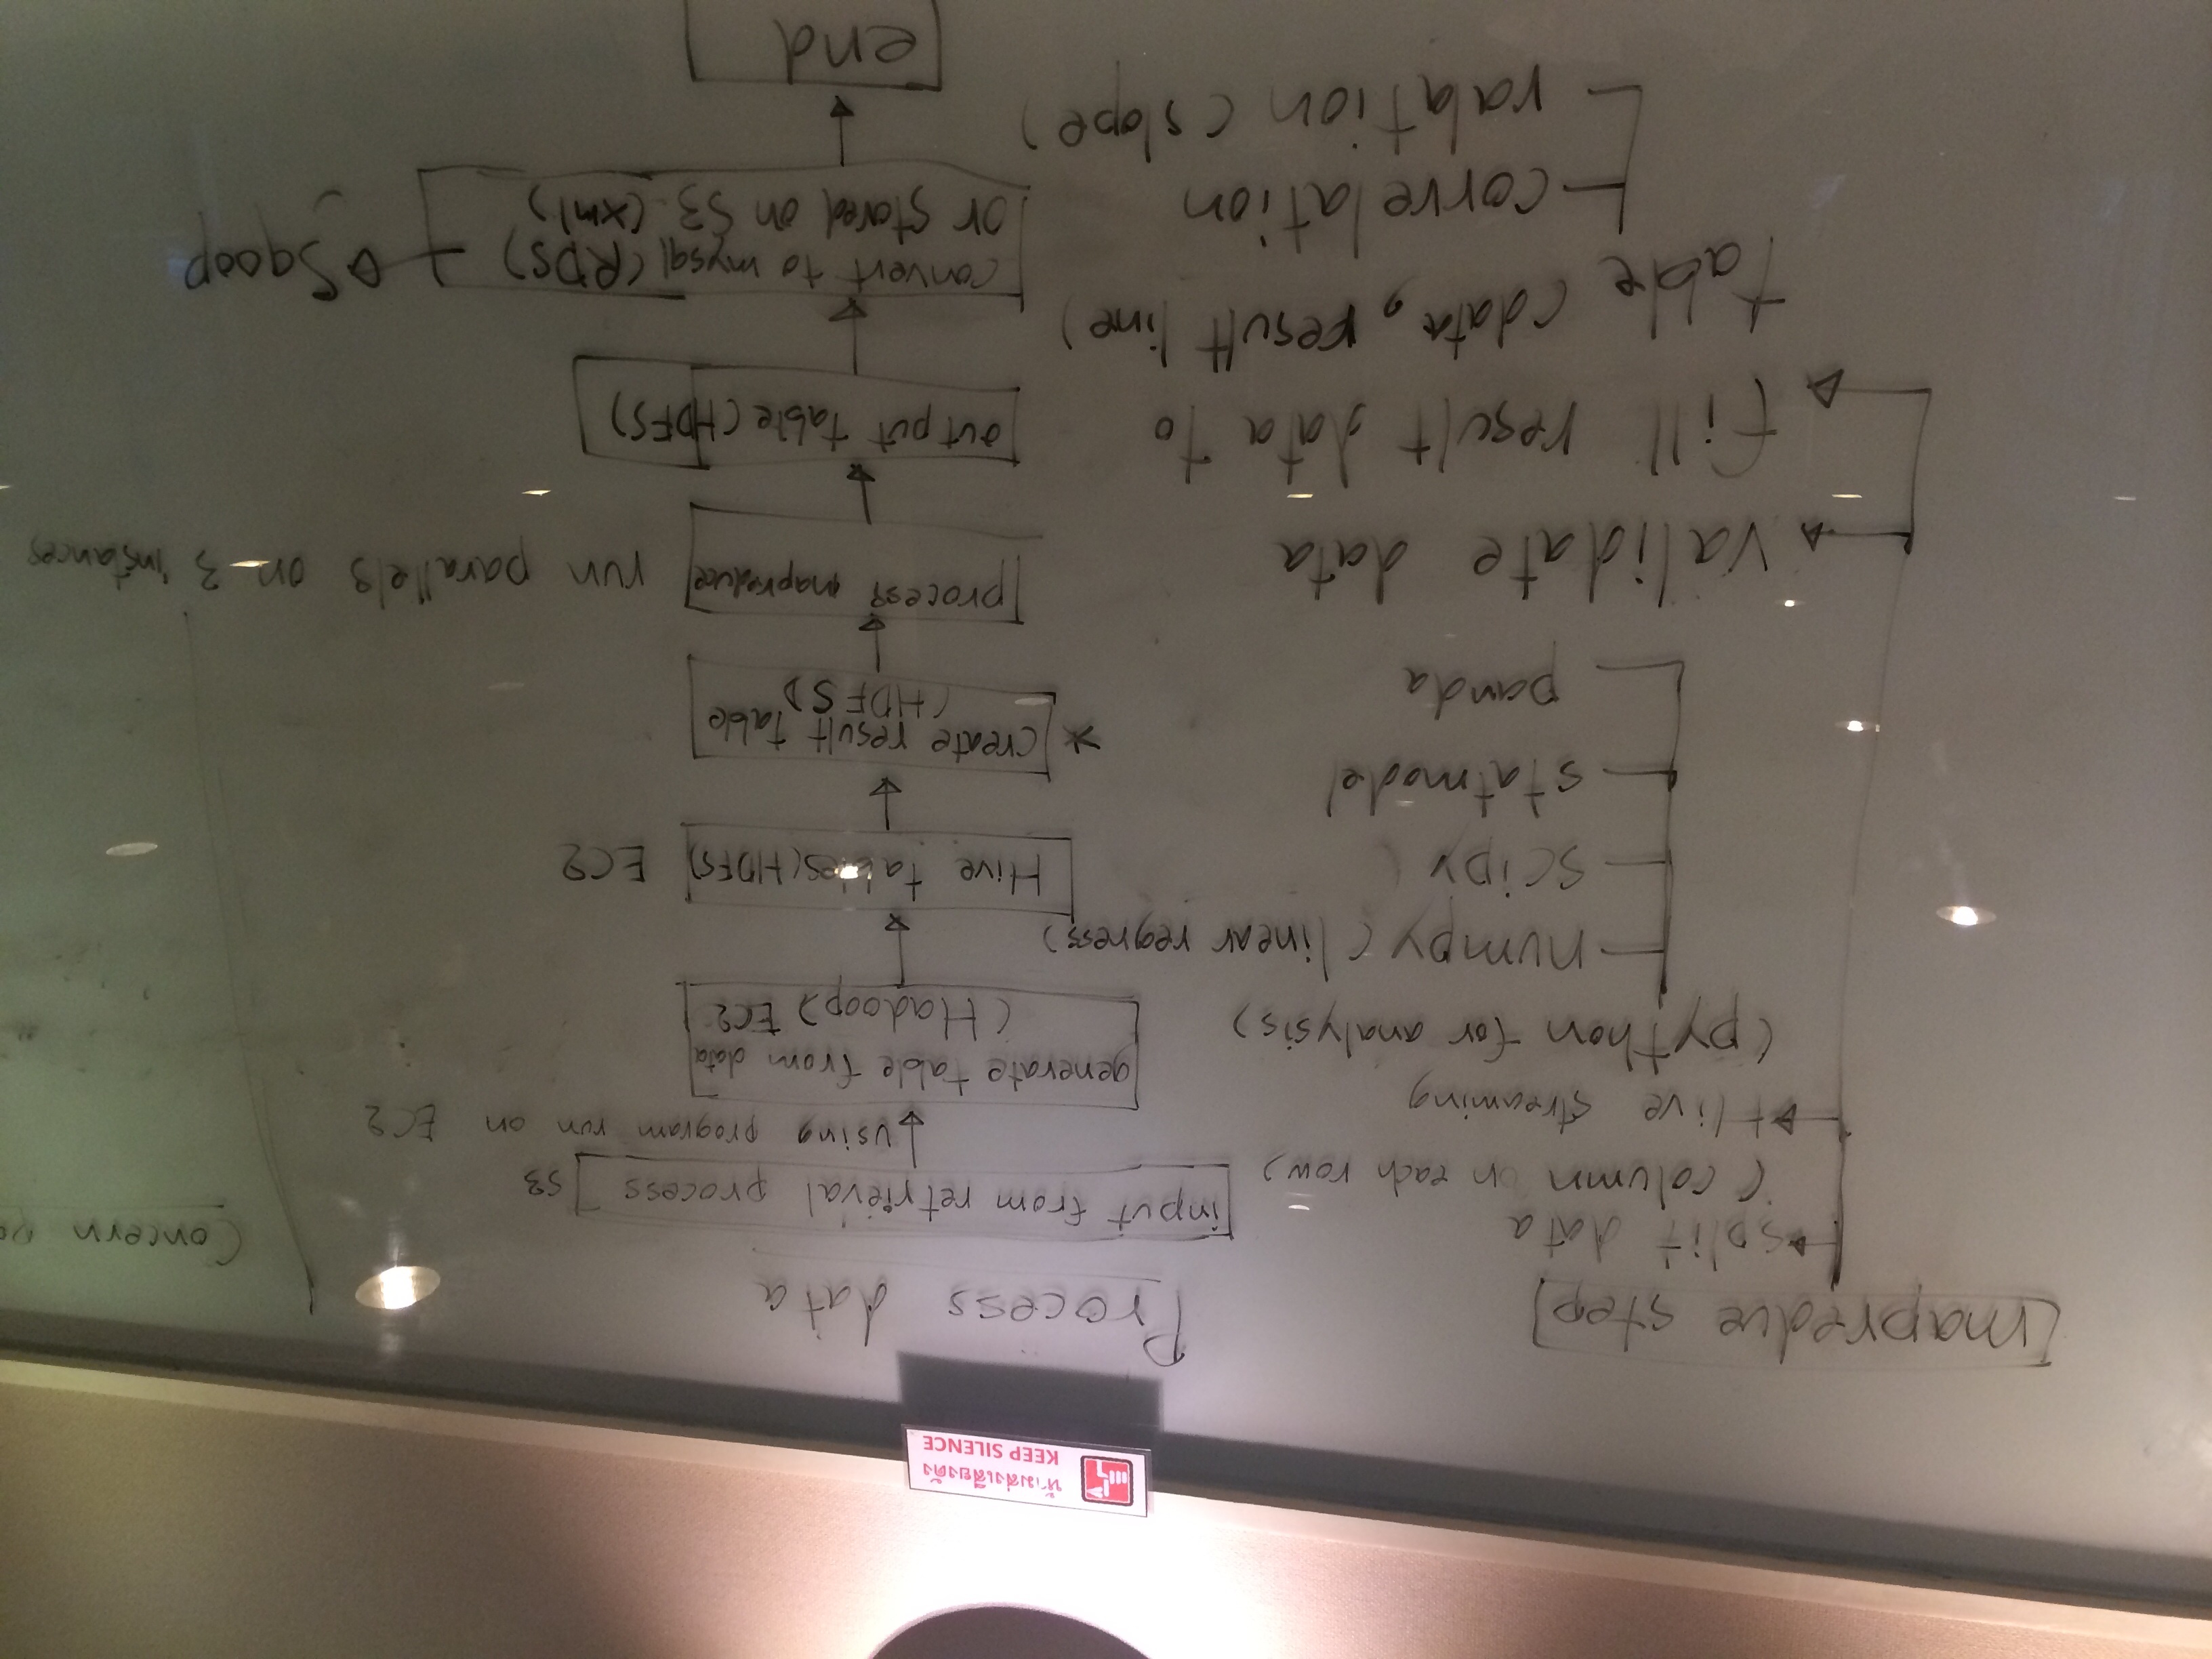 ห้ามส่งเสียงดัง
KEEP SILENCE
mapredue step
split data
(column on each row)
Hive streaming
(python for analysis)
numpy (linear regress)
scipy
statmodel
panda
validate data
fill result data to
table (data, result line)
correlation
ralation (slope)
Process data
input from retrieval process S3
using program run on EC2
generate table from data
(Hadoop) EC2
Hive tables (HDFS) EC2
* create result table
(HDFS)
process mapreduce run parallels on 3 instances
output table (HDFS)
convert to mysql (RDS)
or stored on S3 (xml)
Sqoop
end
Concern